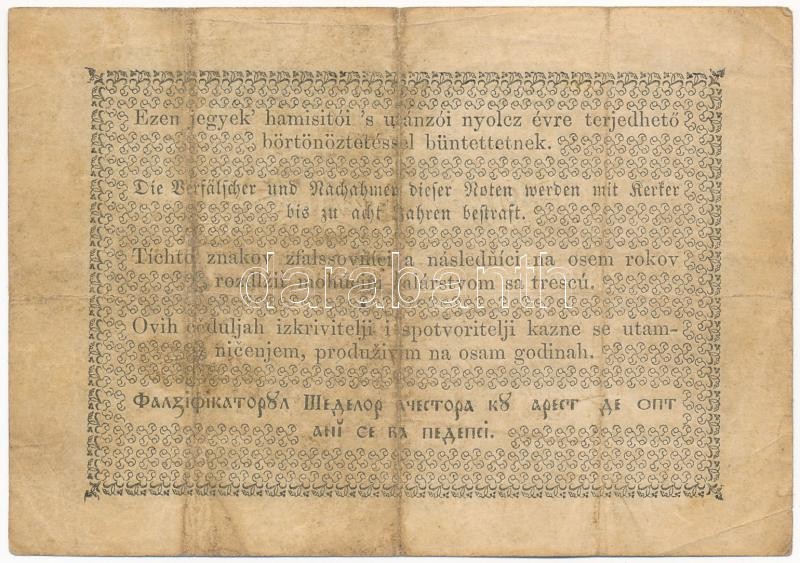 Ezen jegyek' hamisitói 's utánzói nyolcz évre terjedhető
börtönöztetéssel büntettetnek.
Die Verfälscher und Nachahmer dieser Noten werden mit Kerker
bis zu acht Jahren bestraft.
Tíchto znakov zfalssovníci a následńíci na osem rokov
sa trescú.
Ovih ceduljah izkrivitelji i spotvoritelji kazne se utam-
ničenjem, produživim na osam godinah.
Фалꙃіфікаторꙋл Шеделор ачестора кꙋ арест де опт
анĭ се ва педепсі.
darabanth